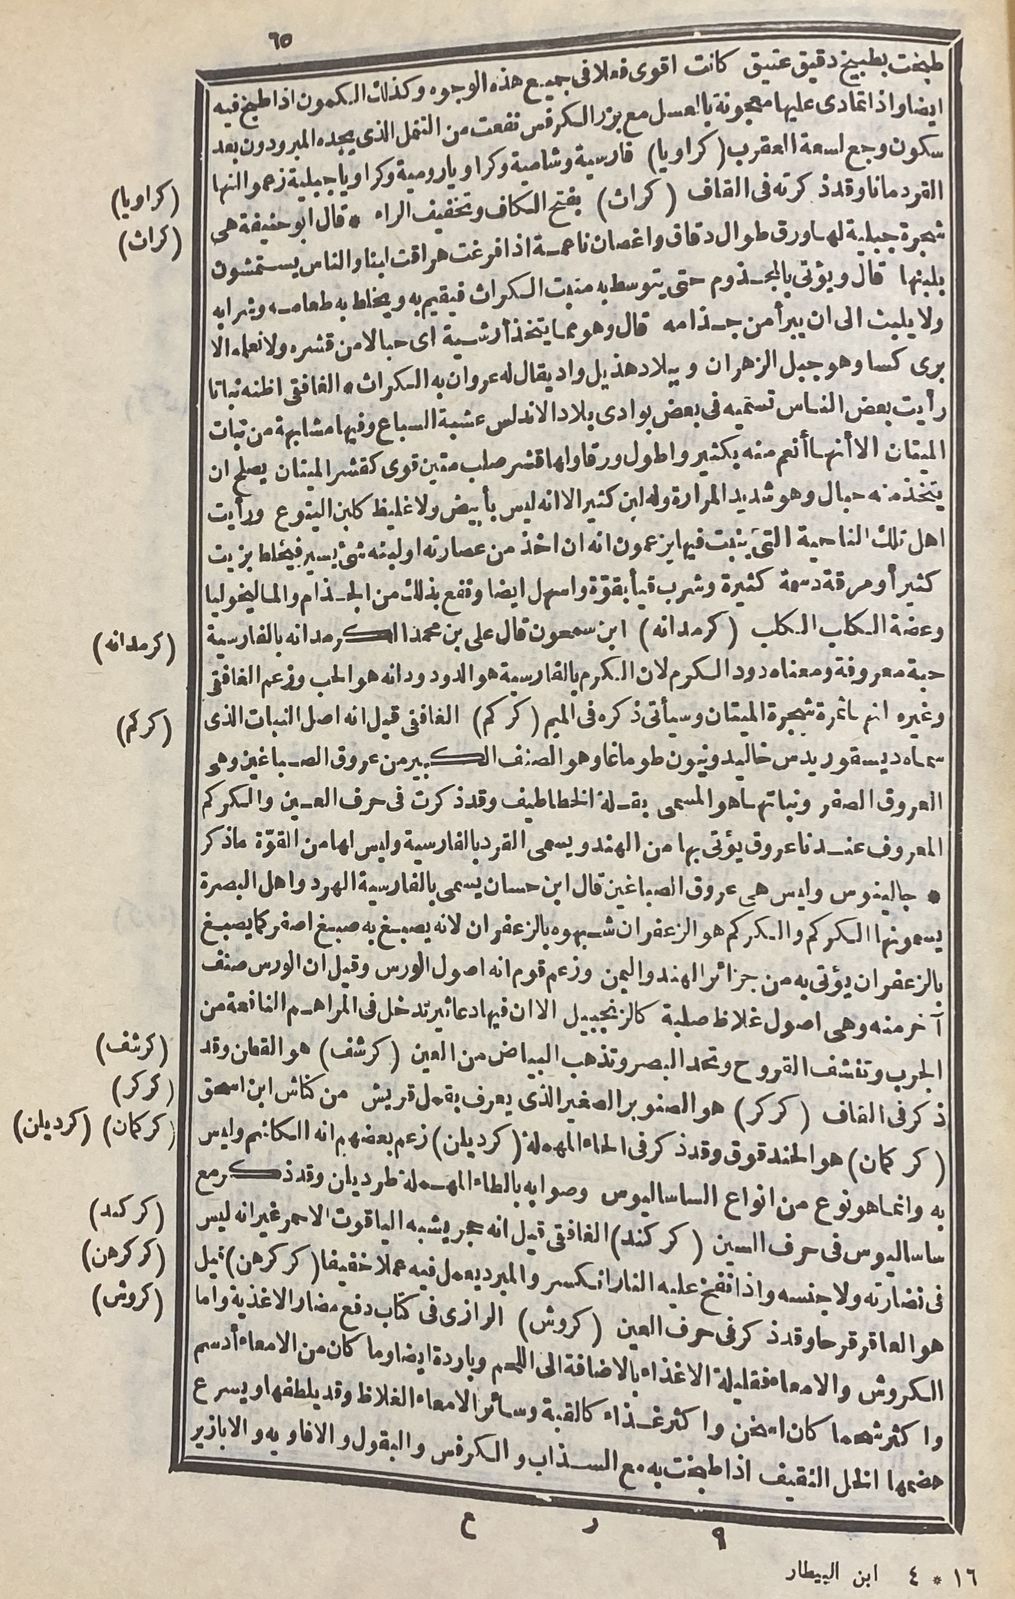 ٦٥
طبخت بطبيخ دقيق عتيق كانت اقوى فعلا فى جميع هذه الوجوه وكذلك الكمون اذا طبخ فيه
ايضا واذا تمادى عليها معجونة بالعسل مع بزر الكرفس نفعت من الثقل الذى يجده المبرودون بعد
سكون وجع لسعة العقرب (كراويا) فارسية وشامية وكراويا رومية وكراويا جبلية زعموا انها
القردمانا وقد ذكرته فى القاف (كراث) بفتح الكاف وتخفيف الراء * قال ابو حنيفة هى
شجرة جبلية لها ورق طوال دقاق واغصان ناعمة اذا فرغت هراقت لبنا والناس يستمشون
بلبنها قال ويؤتى بالمجذوم حتى يتوسط به منبت الكراث فيقيم به ويخلط به طعامه وشرابه
ولا يلبث الى ان يبرأ من جذامه قال وهو مما يتخذ أرشية اى حبالا من قشره ولا نعله الا
برى كسا وهو جبل الزهران وببلاد هذيل واد يقال له عروان به الكراث * الغافقى اظنه نباتا
رأيت بعض الناس تسميه فى بعض بوادى بلاد الاندلس عشبة السباع وفيها مشابهة من نبات
الميثان الا أنها أنعم منه بكثير واطول ورقا ولها قشر صلب متين قوى كقشر الميثان يصلح ان
يتخذ منه حبال وهو شديد المرارة وله لبن كثير الا انه ليس بأبيض ولا غليظ كلبن اليتوع ورأيت
اهل تلك الناحية التى ينبت فيها يزعمون انه ان اخذ من عصارته او لبنه شئ يسير فيخلط بزيت
كثير أو مرقة دسمة كثيرة وشرب قيأ بقوة واسهل ايضا ونفع بذلك من الجذام والماليخوليا
وعضة الكلب الكلب (كرمدانه) ابن سمعون قال على بن محمد الكرمدانه بالفارسية
حبة معروفة ومعناه دود الكرم لان الكرم بالفارسية هو الدود ودانه هو الحب وزعم الغافقى
وغيره انها ثمرة شجرة الميثان وسيأتى ذكره فى الميم (كركم) الغافقى قيل انه اصل النبات الذى
سماه ديسقوريدس خاليدونيون طوماغا وهو الصنف الكبير من عروق الصباغين وهى
العروق الصفر ونباتها هو المسمى بقلة الخطاطيف وقد ذكرت فى حرف العين والكركم
المعروف عندنا عروق يؤتى بها من الهند ويسمى القرد بالفارسية وليس لها من القوة ما ذكر
* جالينوس وليس هى عروق الصباغين قال ابن حسان يسمى بالفارسية الهرد واهل البصرة
يسمونها الكركم والكركم هو الزعفران شبهوه بالزعفران لانه يصبغ به صبغ اصفر كما يصبغ
بالزعفران يؤتى به من جزائر الهند واليمن وزعم قوم انه اصول الورس وقيل ان الورس صنف
آخر منه وهى اصول غلاظ صلبة كالزنجبيل الا ان فيها دعائير تدخل فى المراهم النافعة من
الجرب وتنشف القروح وتحد البصر وتذهب البياض من العين (كرشف) هو القطن وقد
ذكر فى القاف (كركر) هو الصنوبر الصغير الذى يعرف بقمل قريش من كناش ابن اسحق
(كركمان) هو الحندقوق وقد ذكر فى الحاء المهملة (كرديلن) زعم بعضهم انه الكاشم وليس
به وانما هو نوع من انواع الساساليوس وصوابه بالطاء المهملة طرديلن وقد ذكر مع
ساساليوس فى حرف السين (كركند) الغافقى قيل انه حجر يشبه الياقوت الاحمر غير انه ليس
فى نضارته ولا جنسه واذا نفخ عليه النار انكسر والمبرد يعمل فيه عملا خفيفا (كركرهن) قيل
هو العاقرقرحا وقد ذكر فى حرف العين (كروش) الرازى فى كتاب دفع مضار الاغذية واما
الكروش والامعاء فقليلة الاغذاء بالاضافة الى اللحم وباردة ايضا وما كان من الامعاء أدسم
واكثر شحما كان اسخن واكثر غذاء كالقبة وسائر الامعاء الغلاظ وقد يلطفها ويسرع
هضمها الخل الثقيف اذا طبخت به مع السذاب والكرفس والبقول والافاويه والابازير
(كراويا)
(كراث)
(كرمدانه)
(كركم)
(كرشف)
(كركر)
(كركمان) (كرديلن)
(كركند)
(كركرهن)
(كروش)
٩ ر ع
١٦ * ٤ ابن البيطار